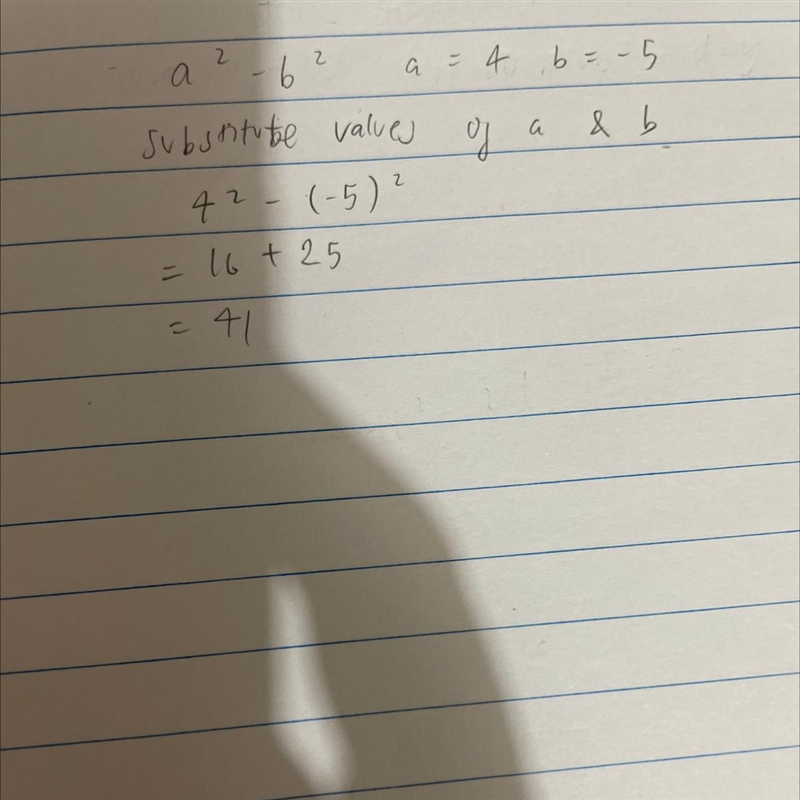 a² - b² a = 4 b = -5
substitute values of a & b
4² - (-5)²
= 16 + 25
= 41